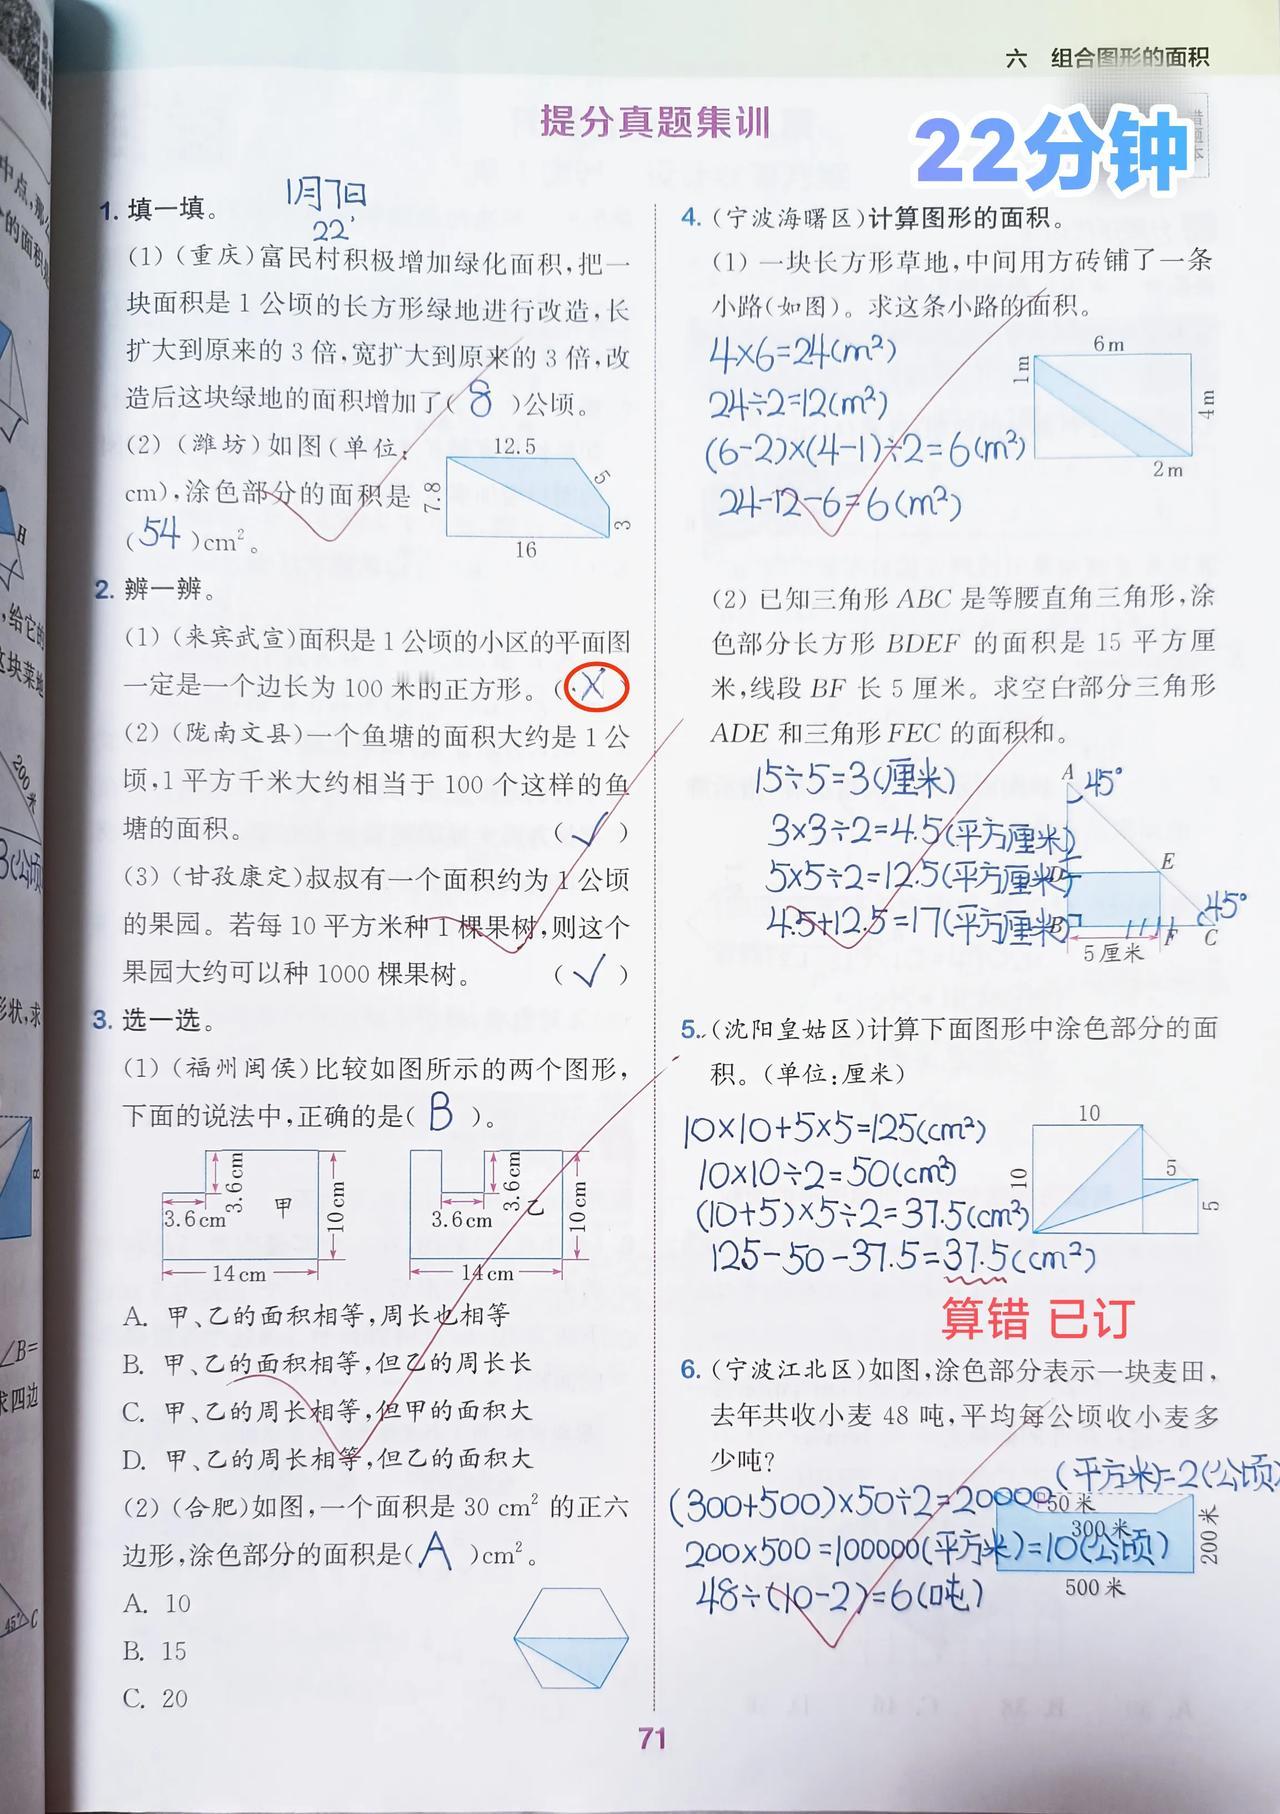 六 组合图形的面积
提分真题集训
22分钟
错题本
1月7日
22'
1. 填一填。
(1)(重庆)富民村积极增加绿化面积,把一
块面积是1公顷的长方形绿地进行改造,长
扩大到原来的3倍,宽扩大到原来的3倍,改
造后这块绿地的面积增加了( 8 )公顷。
(2)(潍坊)如图(单位:
cm),涂色部分的面积是
( 54 )cm²。
12.5
5
7.8
3
16
2. 辨一辨。
(1)(来宾武宣)面积是1公顷的小区的平面图
一定是一个边长为100米的正方形。( X )
(2)(陇南文县)一个鱼塘的面积大约是1公
顷,1平方千米大约相当于100个这样的鱼
塘的面积。 ( ✓ )
(3)(甘孜康定)叔叔有一个面积约为1公顷
的果园。若每10平方米种1棵果树,则这个
果园大约可以种1000棵果树。 ( ✓ )
3. 选一选。
(1)(福州闽侯)比较如图所示的两个图形,
下面的说法中,正确的是( B )。
3.6cm
3.6cm
甲
10cm
14cm
3.6cm
3.6cm
乙
10cm
14cm
A. 甲、乙的面积相等,周长也相等
B. 甲、乙的面积相等,但乙的周长长
C. 甲、乙的周长相等,但甲的面积大
D. 甲、乙的周长相等,但乙的面积大
(2)(合肥)如图,一个面积是30 cm²的正六
边形,涂色部分的面积是( A )cm²。
A. 10
B. 15
C. 20
4. (宁波海曙区)计算图形的面积。
(1) 一块长方形草地,中间用方砖铺了一条
小路(如图)。求这条小路的面积。
4×6=24(m²)
24÷2=12(m²)
(6-2)×(4-1)÷2=6(m²)
24-12-6=6(m²)
6m
1m
4m
2m
(2) 已知三角形ABC是等腰直角三角形,涂
色部分长方形BDEF的面积是15平方厘
米,线段BF长5厘米。求空白部分三角形
ADE和三角形FEC的面积和。
15÷5=3(厘米)
3×3÷2=4.5(平方厘米)
5×5÷2=12.5(平方厘米)
4.5+12.5=17(平方厘米)
A
45°
D
E
B
F
C
45°
5厘米
5. (沈阳皇姑区)计算下面图形中涂色部分的面
积。(单位:厘米)
10×10+5×5=125(cm²)
10×10÷2=50(cm²)
(10+5)×5÷2=37.5(cm²)
125-50-37.5=37.5(cm²)
10
10
5
5
算错 已订
6. (宁波江北区)如图,涂色部分表示一块麦田,
去年共收小麦48吨,平均每公顷收小麦多
少吨?
(300+500)×50÷2=20000(平方米)=2(公顷)
200×500=100000(平方米)=10(公顷)
48÷(10-2)=6(吨)
50米
300米
200米
500米
71
中点,那么
个的面积是
H
,给它的
这块菜地
200米
3(公顷
形状,求
8
∠B=
求四边
45° C